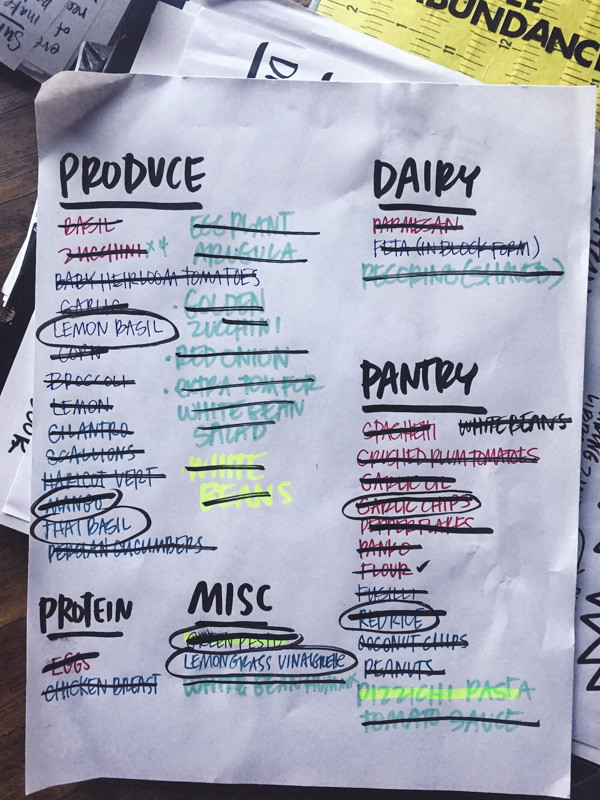 ABUNDANCE
PRODUCE
BASIL
ZUCCHINI x4
BABY HEIRLOOM TOMATOES
GARLIC
LEMON BASIL
CORN
BROCCOLI
LEMON
CILANTRO
SCALLIONS
HARICOT VERT
MANGO
THAI BASIL
PERSIAN CUCUMBERS
EGGPLANT
ARUGULA
• GOLDEN
ZUCCHINI
• RED ONION
• EXTRA TOM FOR
WHITE BEAN
SALAD
WHITE
BEANS
DAIRY
PARMESAN
FETA (IN BLOCK FORM)
PECORINO (SHAVED)
PANTRY
SPAGHETTI WHITE BEANS
CRUSHED PLUM TOMATOES
GARLIC OIL
GARLIC CHIPS
PEPPER FLAKES
PANKO
FLOUR ✓
FUSILLI
RED RICE
COCONUT CHIPS
PEANUTS
PIZZICHI PASTA
TOMATO SAUCE
PROTEIN
EGGS
CHICKEN BREAST
MISC
GREEN PESTO
LEMONGRASS VINAIGRETTE
WHITE BEAN HUMMUS